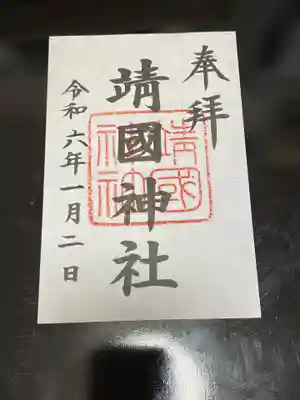 奉拝
靖國神社
靖國
神社
令和六年一月二日